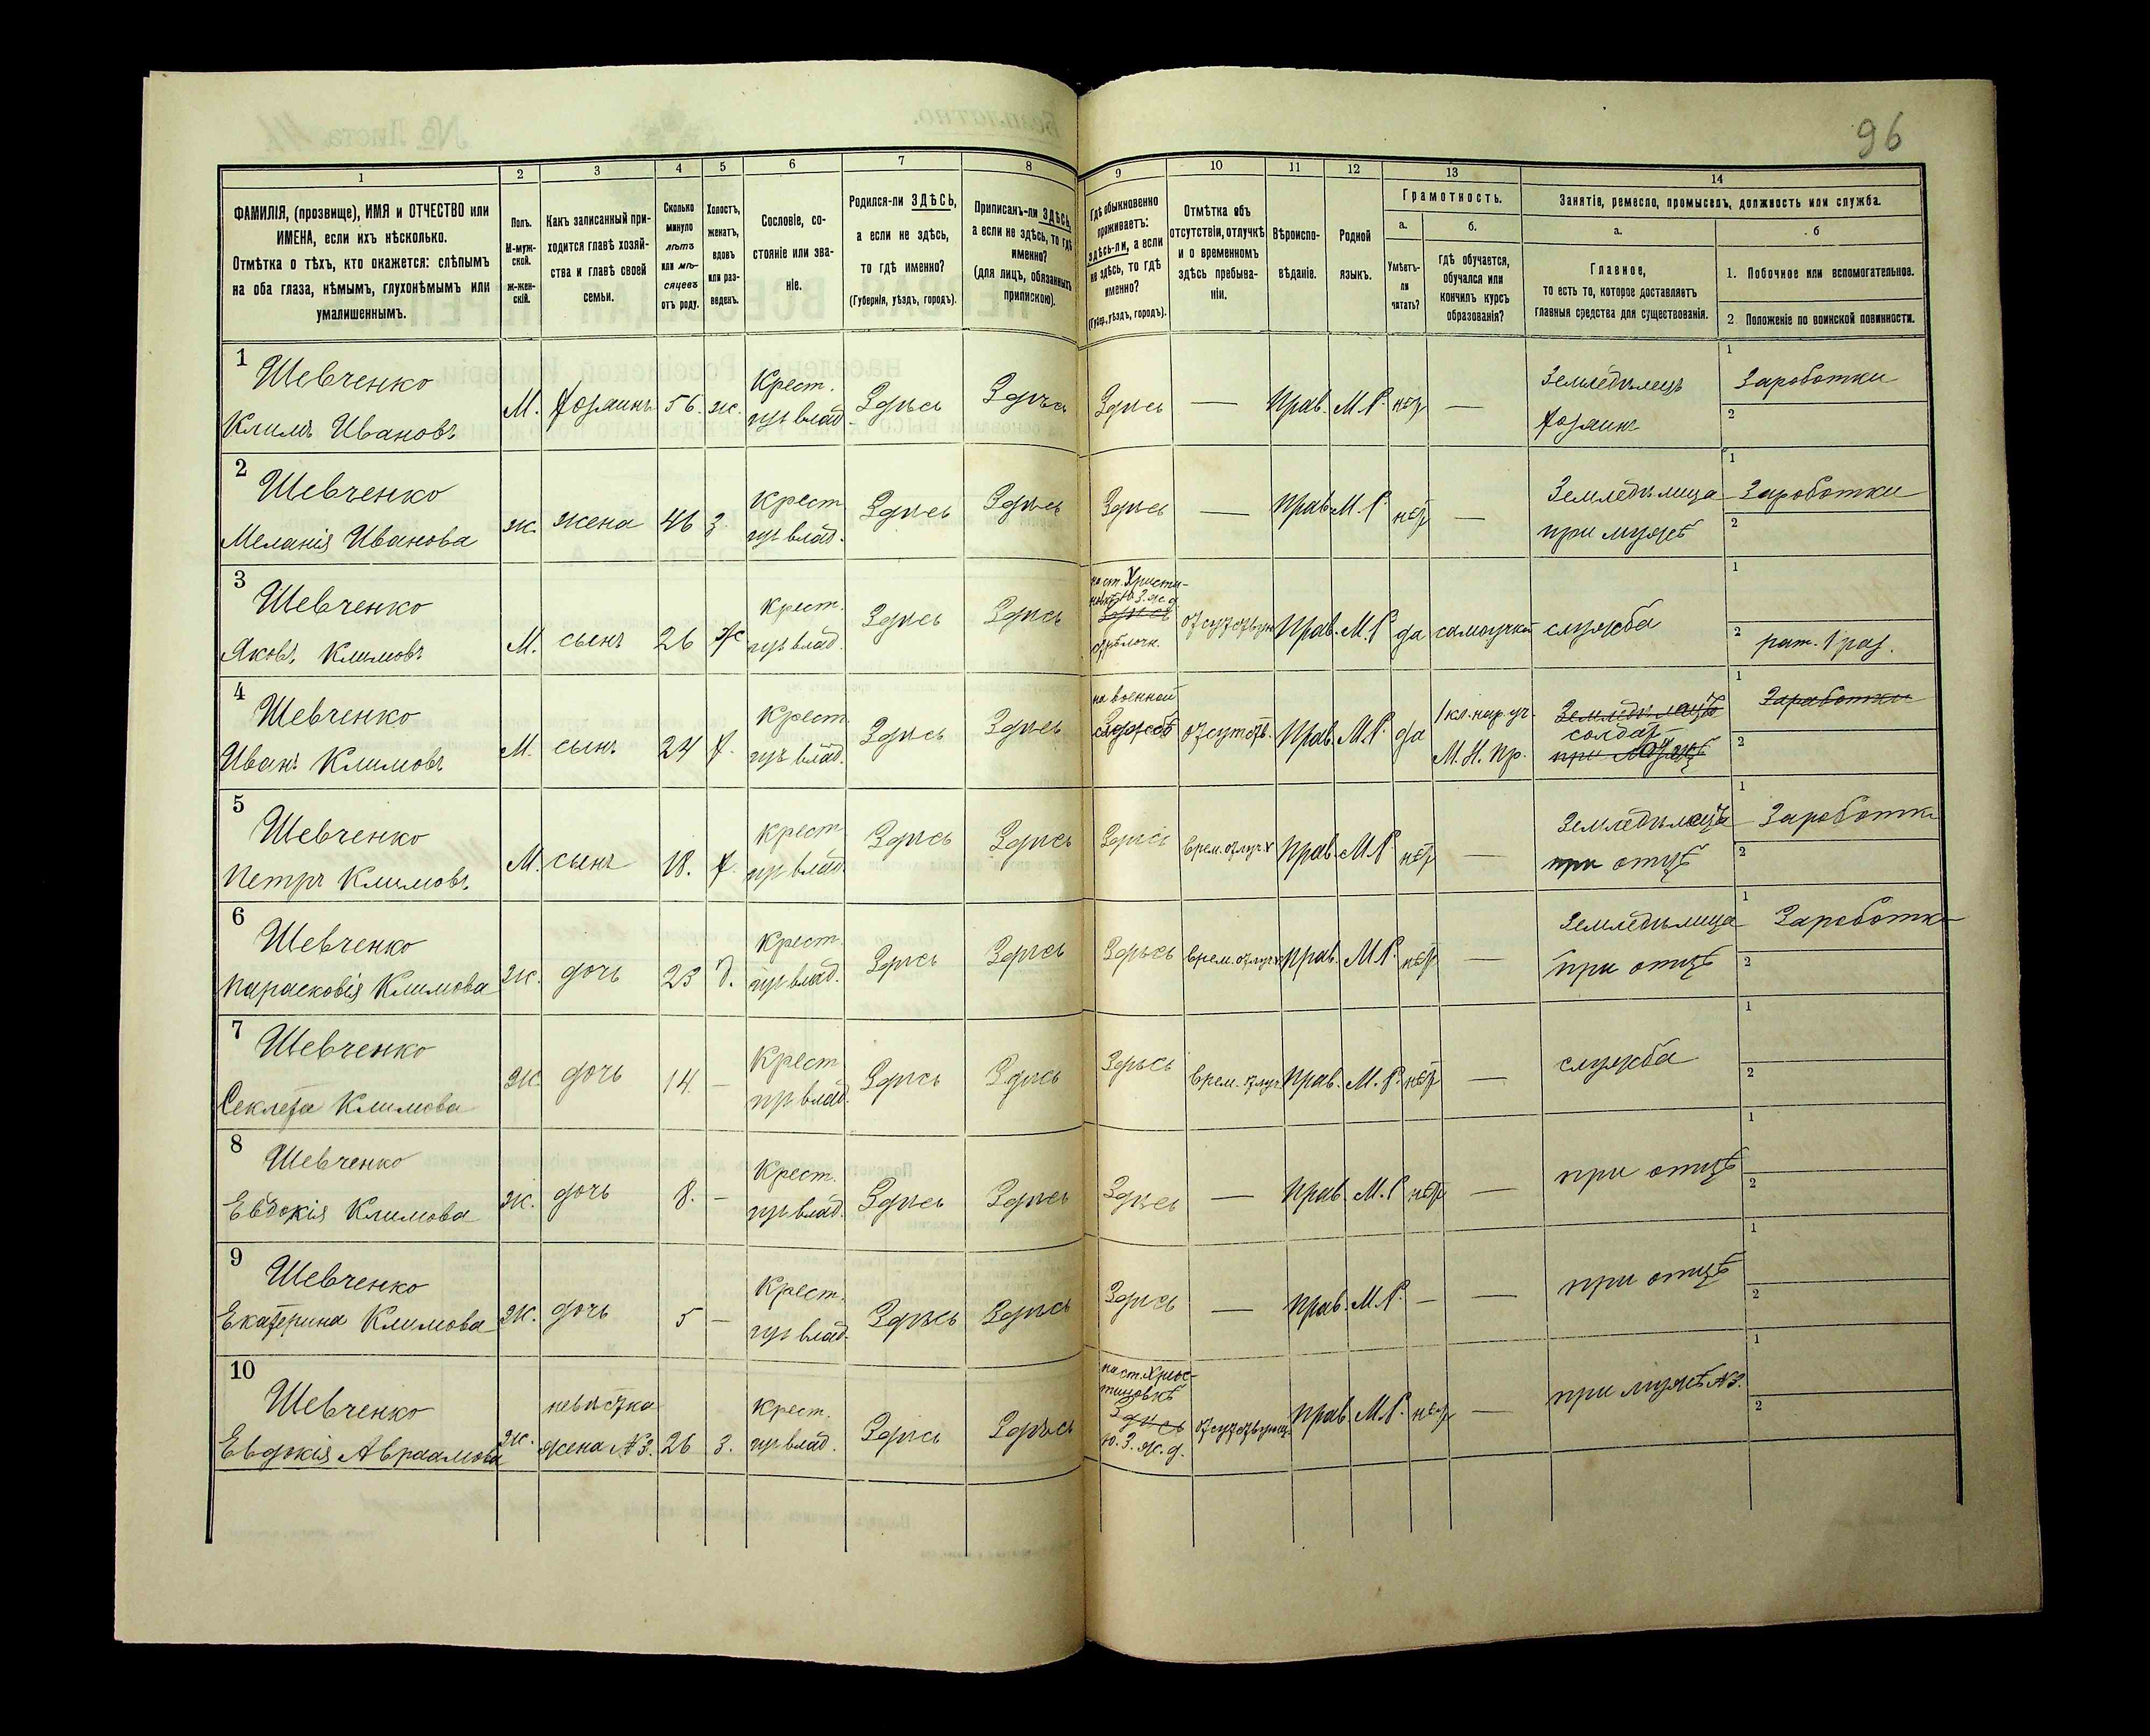 96
1 2 3 4 5 6 7 8 9 10 11 12 13 14
ФАМИЛІЯ, (прозвище), ИМЯ и ОТЧЕСТВО или
ИМЕНА, если ихъ нѣсколько.
Отмѣтка о тѣхъ, кто окажется: слѣпымъ
на оба глаза, нѣмымъ, глухонѣмымъ или
умалишеннымъ.
Полъ.
М-муж-
ской.
Ж-жен-
скій.
Какъ записанный при-
ходится главѣ хозяй-
ства и главѣ своей
семьи.
Сколько
минуло
лѣтъ
или мѣ-
сяцевъ
отъ роду.
Холостъ,
женатъ,
вдовъ
или раз-
веденъ.
Сословіе, со-
стояніе или зва-
ніе.
Родился-ли ЗДѢСЬ,
а если не здѣсь,
то гдѣ именно?
(Губернія, уѣздъ, городъ).
Приписанъ-ли ЗДѢСЬ,
а если не здѣсь, то гдѣ
именно?
(для лицъ, обязанныхъ
припискою).
Гдѣ обыкновенно
проживаетъ:
ЗДѢСЬ-ли, а если
не здѣсь, то гдѣ
именно?
(Губер., уѣздъ, городъ).
Отмѣтка объ
отсутствіи, отлучкѣ
и о временномъ
здѣсь пребыва-
ніи.
Вѣроиспо-
вѣданіе.
Родной
языкъ.
Грамотность.
а.
Умѣетъ-
ли
читать?
б.
гдѣ обучается,
обучался или
кончилъ курсъ
образованія?
Занятіе, ремесло, промыселъ, должность или служба.
а.
Главное,
то есть то, которое доставляетъ
главныя средства для существованія.
б
1. Побочное или вспомогательное.
2. Положеніе по воинской повинности.
1 Шевченко
Климъ Ивановъ М. Хозяинъ 56. ж. Крест. изъ влад. Здѣсь Здѣсь Здѣсь — Прав. М.Р. нѣт — Земледѣлецъ Хозяинъ 1 Зароботки 2
2 Шевченко
Меланія Иванова ж. жена 46 З. Крест. изъ влад. Здѣсь Здѣсь Здѣсь — Прав. М.Р. нѣт — Земледѣлица при мужѣ 1 Зароботки 2
3 Шевченко
Яковъ Климовъ М. сынъ 26 ж Крест. изъ влад. Здѣсь Здѣсь на ст. Христи- новкѣ Ю.З.ж.д. Здѣсь стрѣлочн. Прав. М.Р. да самоучкой служба 1 2 рат. 1 раз.
4 Шевченко
Иванъ Климовъ М. сынъ 24 х. Крест. изъ влад. Здѣсь Здѣсь на военной службѣ отсутств. Прав. М.Р. да 1 кл. нар. уч. М.Н.Пр. солдатъ 1 Заработки 2
5 Шевченко
Петръ Климовъ М. сынъ 18. х. Крест. изъ влад. Здѣсь Здѣсь Здѣсь врем. отлуч. Прав. М.Р. нѣт — Земледѣлецъ при отцѣ 1 Зароботки 2
6 Шевченко
Парасковія Климова ж. дочь 23 д. Крест. изъ влад. Здѣсь Здѣсь Здѣсь врем. отлуч. Прав. М.Р. нѣт — Земледѣлица при отцѣ 1 Зароботки 2
7 Шевченко
Секлета Климова ж. дочь 14. — Крест. изъ влад. Здѣсь Здѣсь Здѣсь врем. отлуч. Прав. М.Р. нѣт — служба 1 2
8 Шевченко
Евдокія Климова ж. дочь 8. — Крест. изъ влад. Здѣсь Здѣсь Здѣсь — Прав. М.Р. нѣт — при отцѣ 1 2
9 Шевченко
Екатерина Климова ж. дочь 5 — Крест. изъ влад. Здѣсь Здѣсь Здѣсь — Прав. М.Р. — — при отцѣ 1 2
10 Шевченко
Евдокія Авраамова ж. невѣстка жена №3. 26 З. Крест. изъ влад. Здѣсь Здѣсь на ст. Хрис- тиновкѣ Здѣсь Ю.З.ж.д. Прав. М.Р. нѣт — при мужѣ №3. 1 2